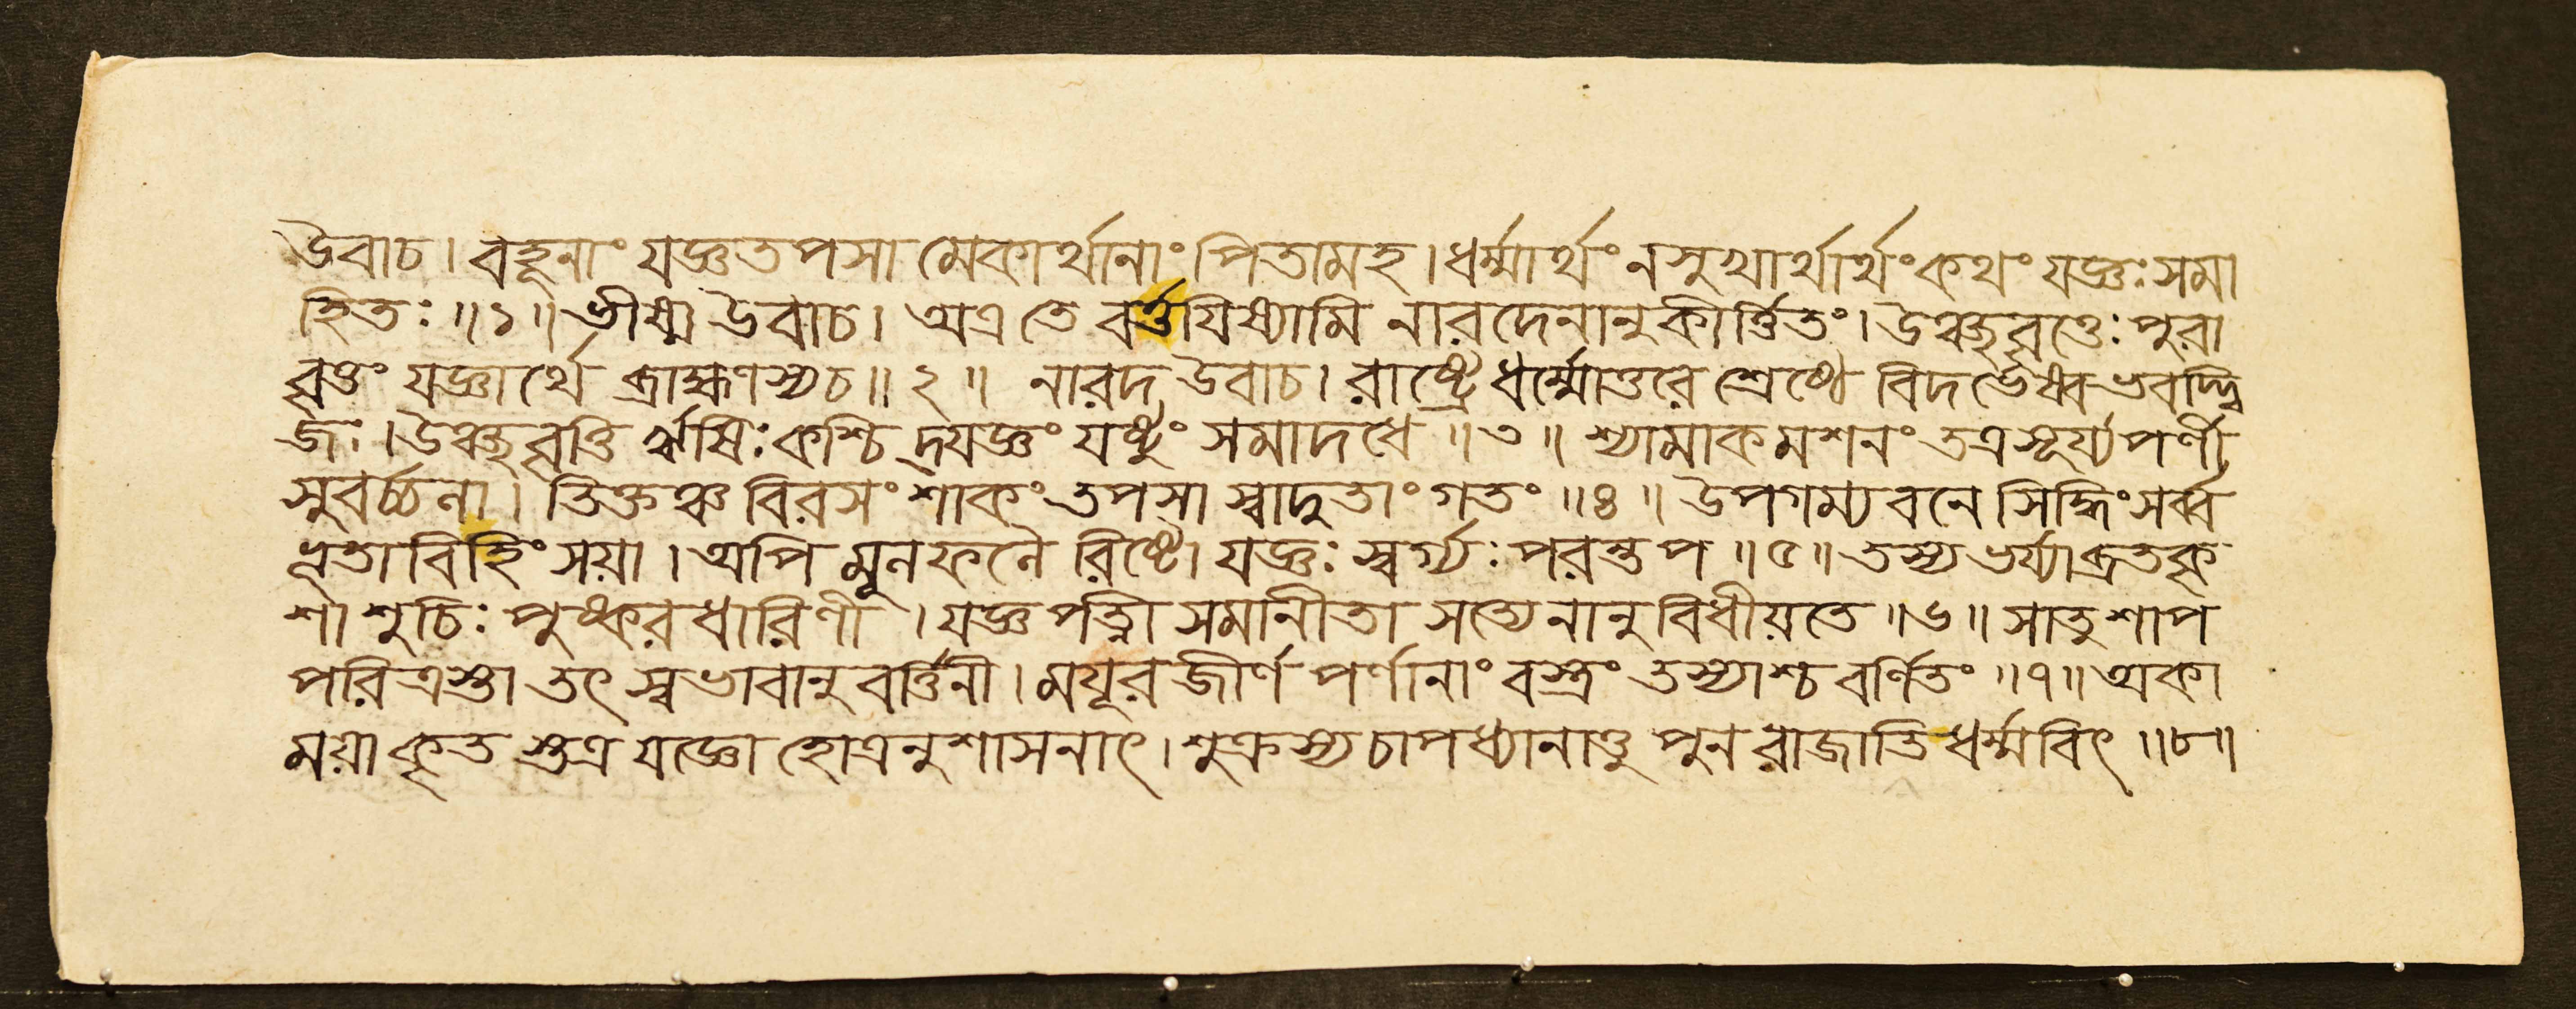 উবাচ। বহূনাং যজ্ঞতপসা মেকার্থানাং পিতামহ। ধর্ম্মার্থং নসুখার্থার্থং কথং যজ্ঞঃ সমা
হিতঃ॥১॥ ভীষ্ম উবাচ। অত্র তে বর্ত্তয়িষ্যামি নারদেনানুকীর্ত্তিতং। উঞ্ছবৃত্তেঃ পুরা
বৃত্তং যজ্ঞার্থে ব্রাহ্মণস্যচ॥২॥ নারদ উবাচ। রাষ্ট্রে ধর্ম্মোত্তরে শ্রেষ্ঠে বিদর্ভেষ্বভবদ্দ্বি
জঃ। উঞ্ছবৃত্তি র্ঋষিঃ কশ্চিদ্যজ্ঞং যষ্টুং সমাদধে॥৩॥ শ্যামাকমশনং তত্র সূর্য্যপর্ণী
সুবর্চ্চনা। তিক্তঞ্চ বিরসং শাকং তপসা স্বাদুতাং গতং॥৪॥ উপগম্য বনে সিদ্ধিং সর্ব্ব
ভূতাবিহিংসয়া। অপি মূনফনৈ রিষ্টো যজ্ঞঃ স্বর্গ্যঃ পরন্তপ॥৫॥ তস্য ভর্য্যা ব্রতকৃ
শা শুচিঃ পুষ্করধারিণী। যজ্ঞপত্নী সমানীতা সত্যেনানুবিধীয়তে॥৬॥ সাতু শাপ
পরিত্রস্তা তৎ স্বভাবানুবর্ত্তিনী। ময়ূরজীর্ণ পর্ণানাং বস্ত্রং তস্যাশ্চ বর্ণিতং॥৭॥ অকা
ময়া কৃত স্তত্র যজ্ঞো হোত্রনুশাসনাৎ। শুক্রস্যচাপধ্যানাত্তু পুনরাজাতি ধর্ম্মবিৎ॥৮॥